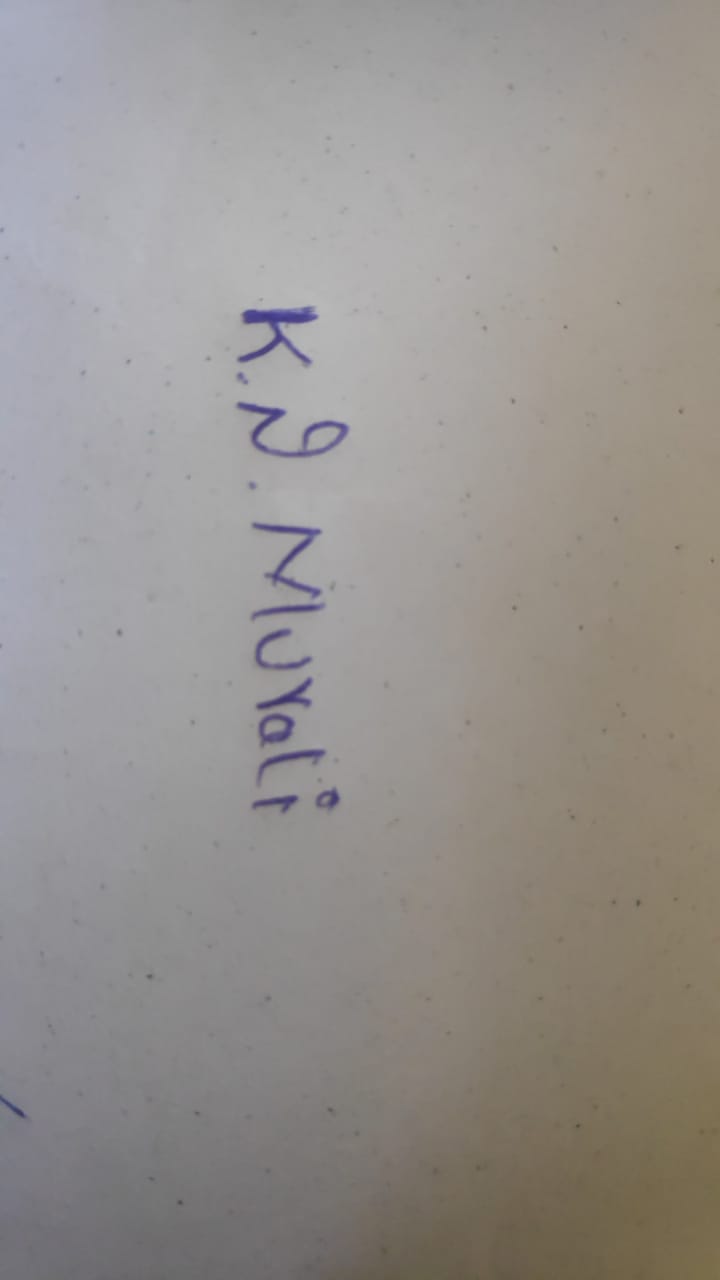 K.N. Murali